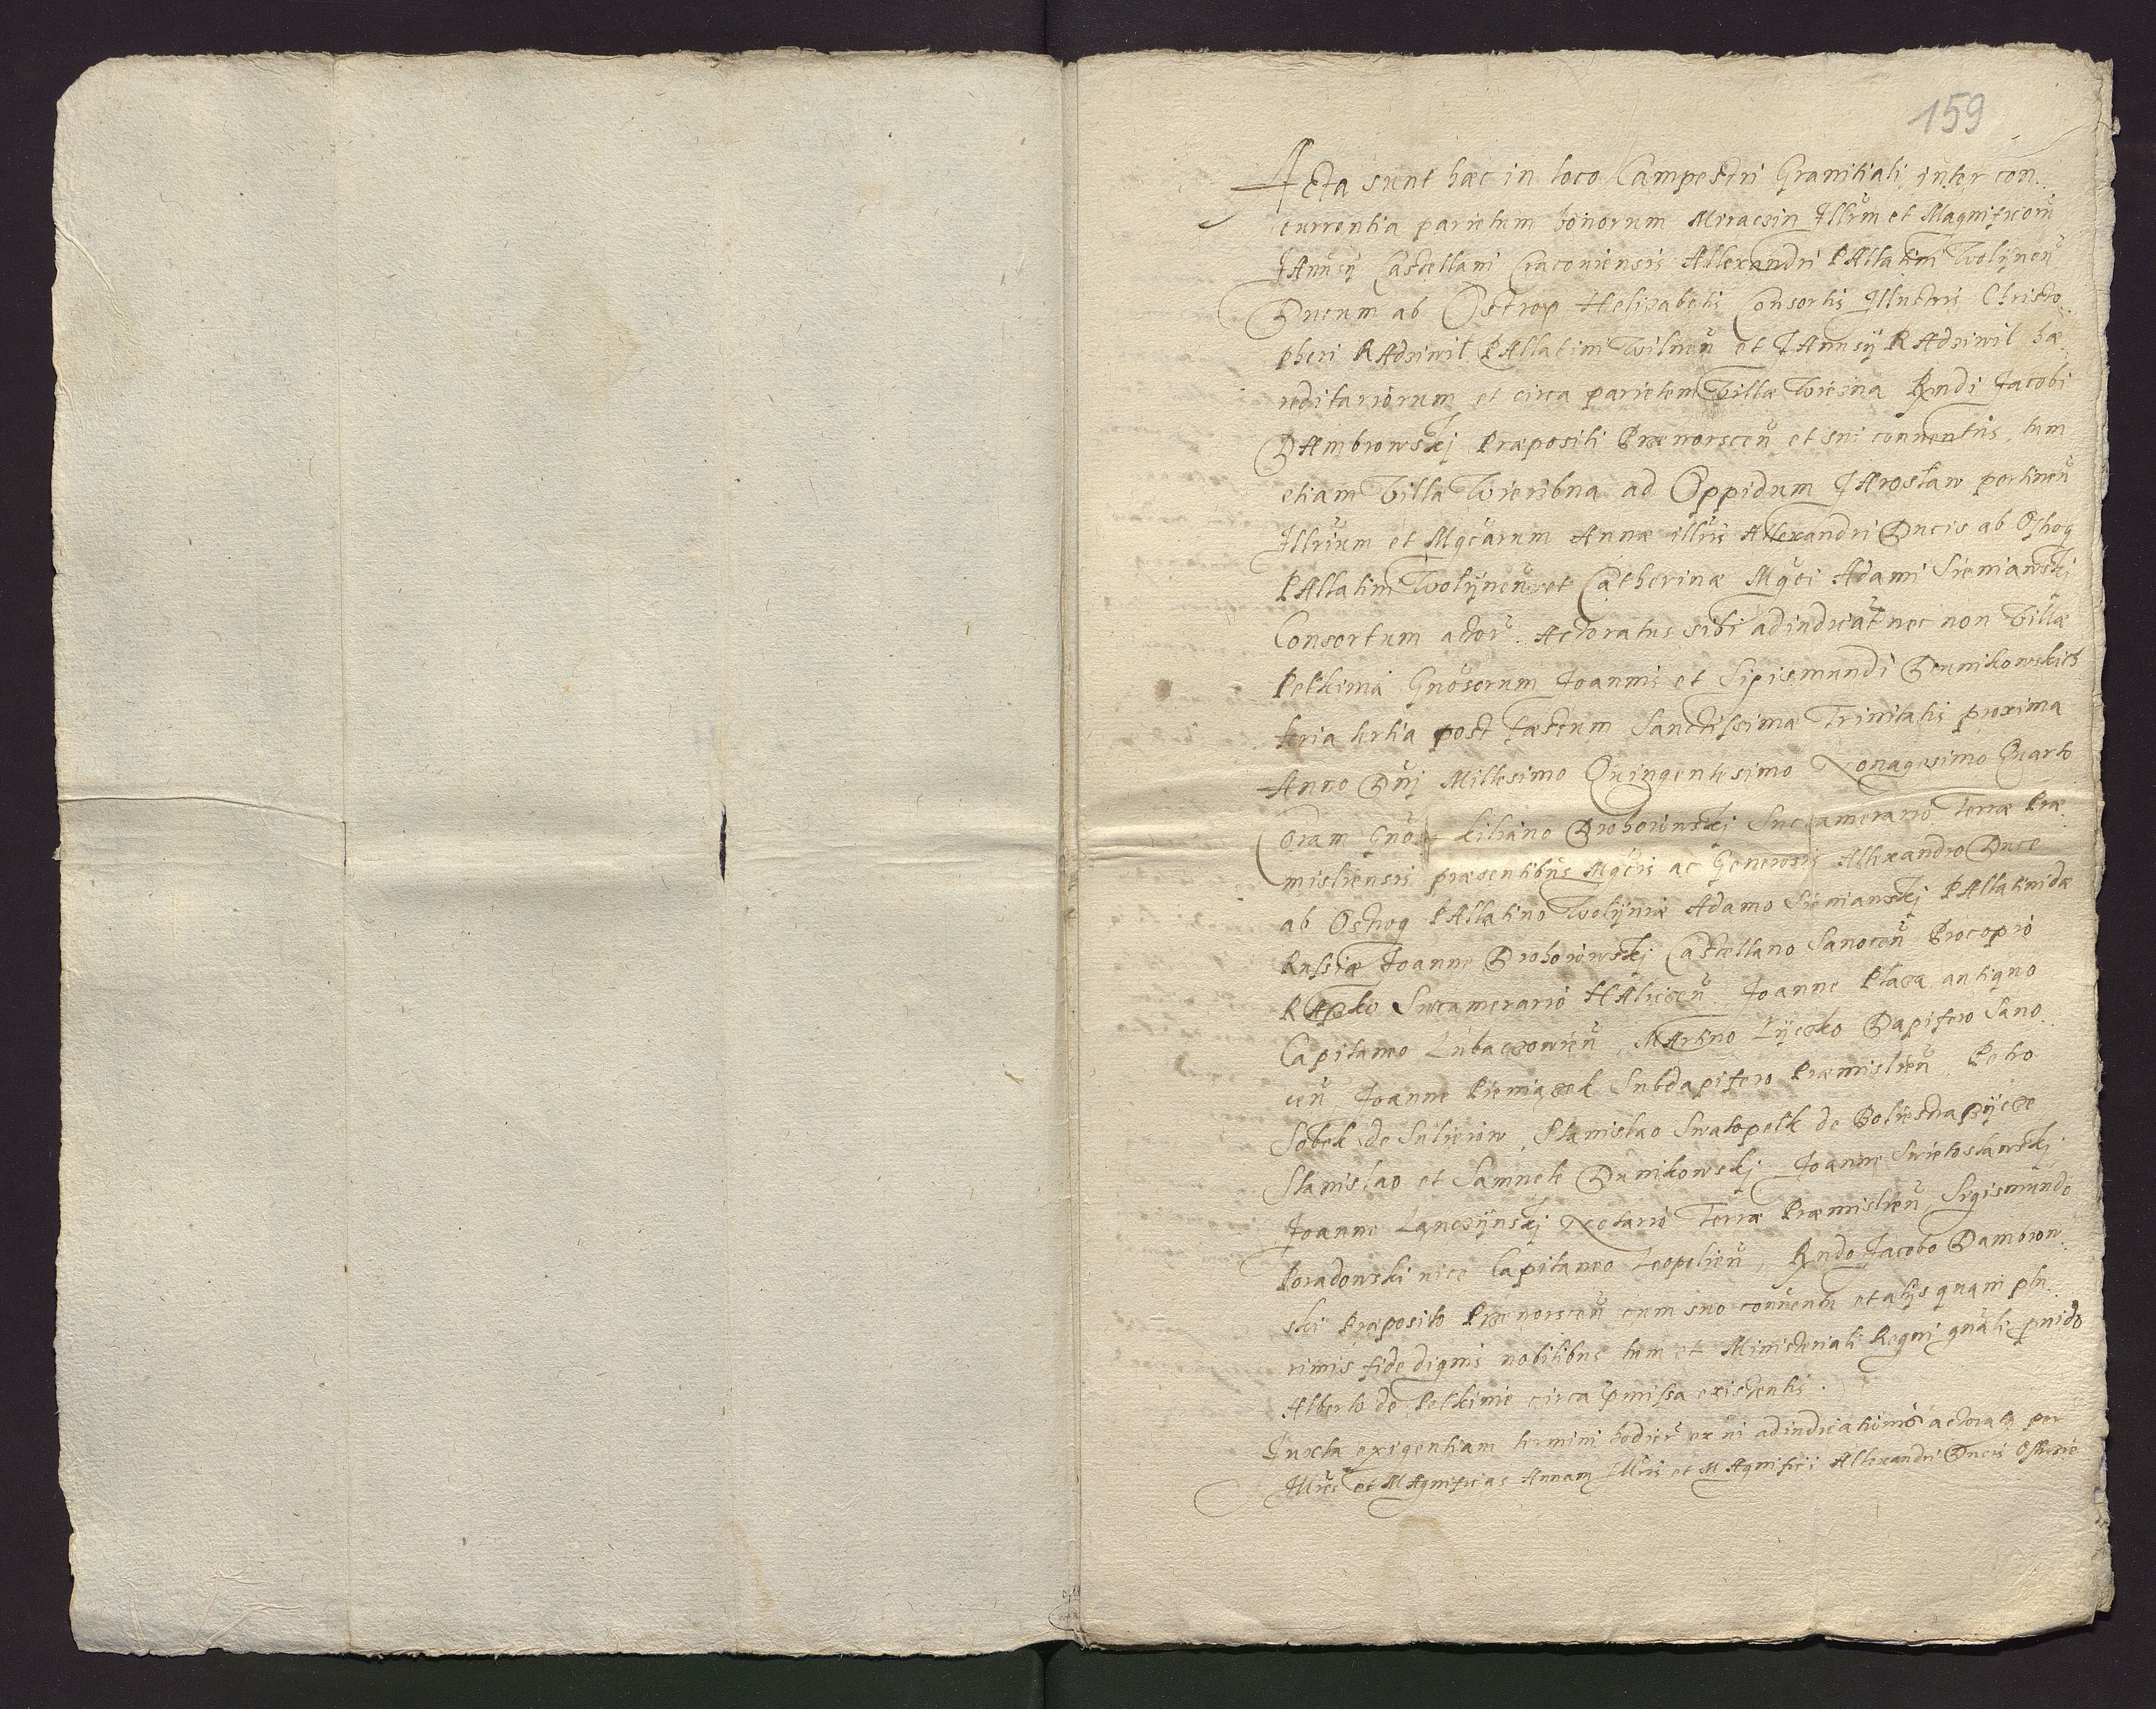 159
Acta sunt hæc in loco Campestri Granitiali inter con
currentia parietum bonorum Miraczin Illrũm et Magnificorũ
JAnusij Castellani Cracoviensis Allexandri PAllatini Wolijneñ
Ducum ab Ostrog Helizabetis Consortis Illustris Christo
pheri RAdziwil PAllatini Wilneñ et JAnusij RAdziwil hæ
reditariorum et circa parietem Villæ Wiesna Rndi Jacobi
DAmbrowskj Præpositi Przeworsceñ et sui conventus, tum
etiam Villa Wieribna ad Oppidum JArosław pertineñ
Illrium et Mgcarum Annæ illris Allexandri Ducis ab Ostrog
PAllatini Wolijneñ et Catherinæ Mgci Adami Sieniawskj
Consortum actor. Actoratus sibi adiudicat nec non Villæ
Pelkinia Gnosorum Joannis et Sigismundi Dunikowskich
feria tertia post Fæstum Sanctissimæ Trinitatis proxima
Anno Dnj Millesimo Quingentesimo Nonagesimo Quarto
Coram Gnoso kiliano Drohoiowskj Succamerario Terræ Præ
misliensis præsentibus Mgcis ac Generosis Allexandro Duce
ab Ostrog PAllatino Wolijniæ Adamo Sieniawskj PAllatinidæ
Russiæ Joanne Drohoiowskj Castellano Sanoceñ Procopio
Succamerario HAliceñ Joanne Płaza antiquo
Capitaneo Lubaczowieñ, MArtino Lijczko Dapifero Sano
ceñ, Joanne Pieniązek Subdapifero Præmislieñ, Petro
Sobek de Sulieiow, Stanislao Swatopelk de
Stanislao et Samuele Dunikowskj Joanne Swietoslawskj
Joanne Lanczijnskj Notario Terræ Præmislieñ Sigismundo
Poradowski vice Capitaneo Leopolieñ, Rndo Jacobo Dambrow
ski Præposito Przeworsceñ cum suo conventu et alijs quam plu
rimis fide dignis nobilibus tum et Ministeriali Regni gnali pvido
Alberto de Pelkinie circa pmissa existentis.
Juxta exigentiam termini hodier ex vi adiudicationis actoratus per
Illres et MAgnificas Annam Illris et MAgnifici Allexandri Ducis